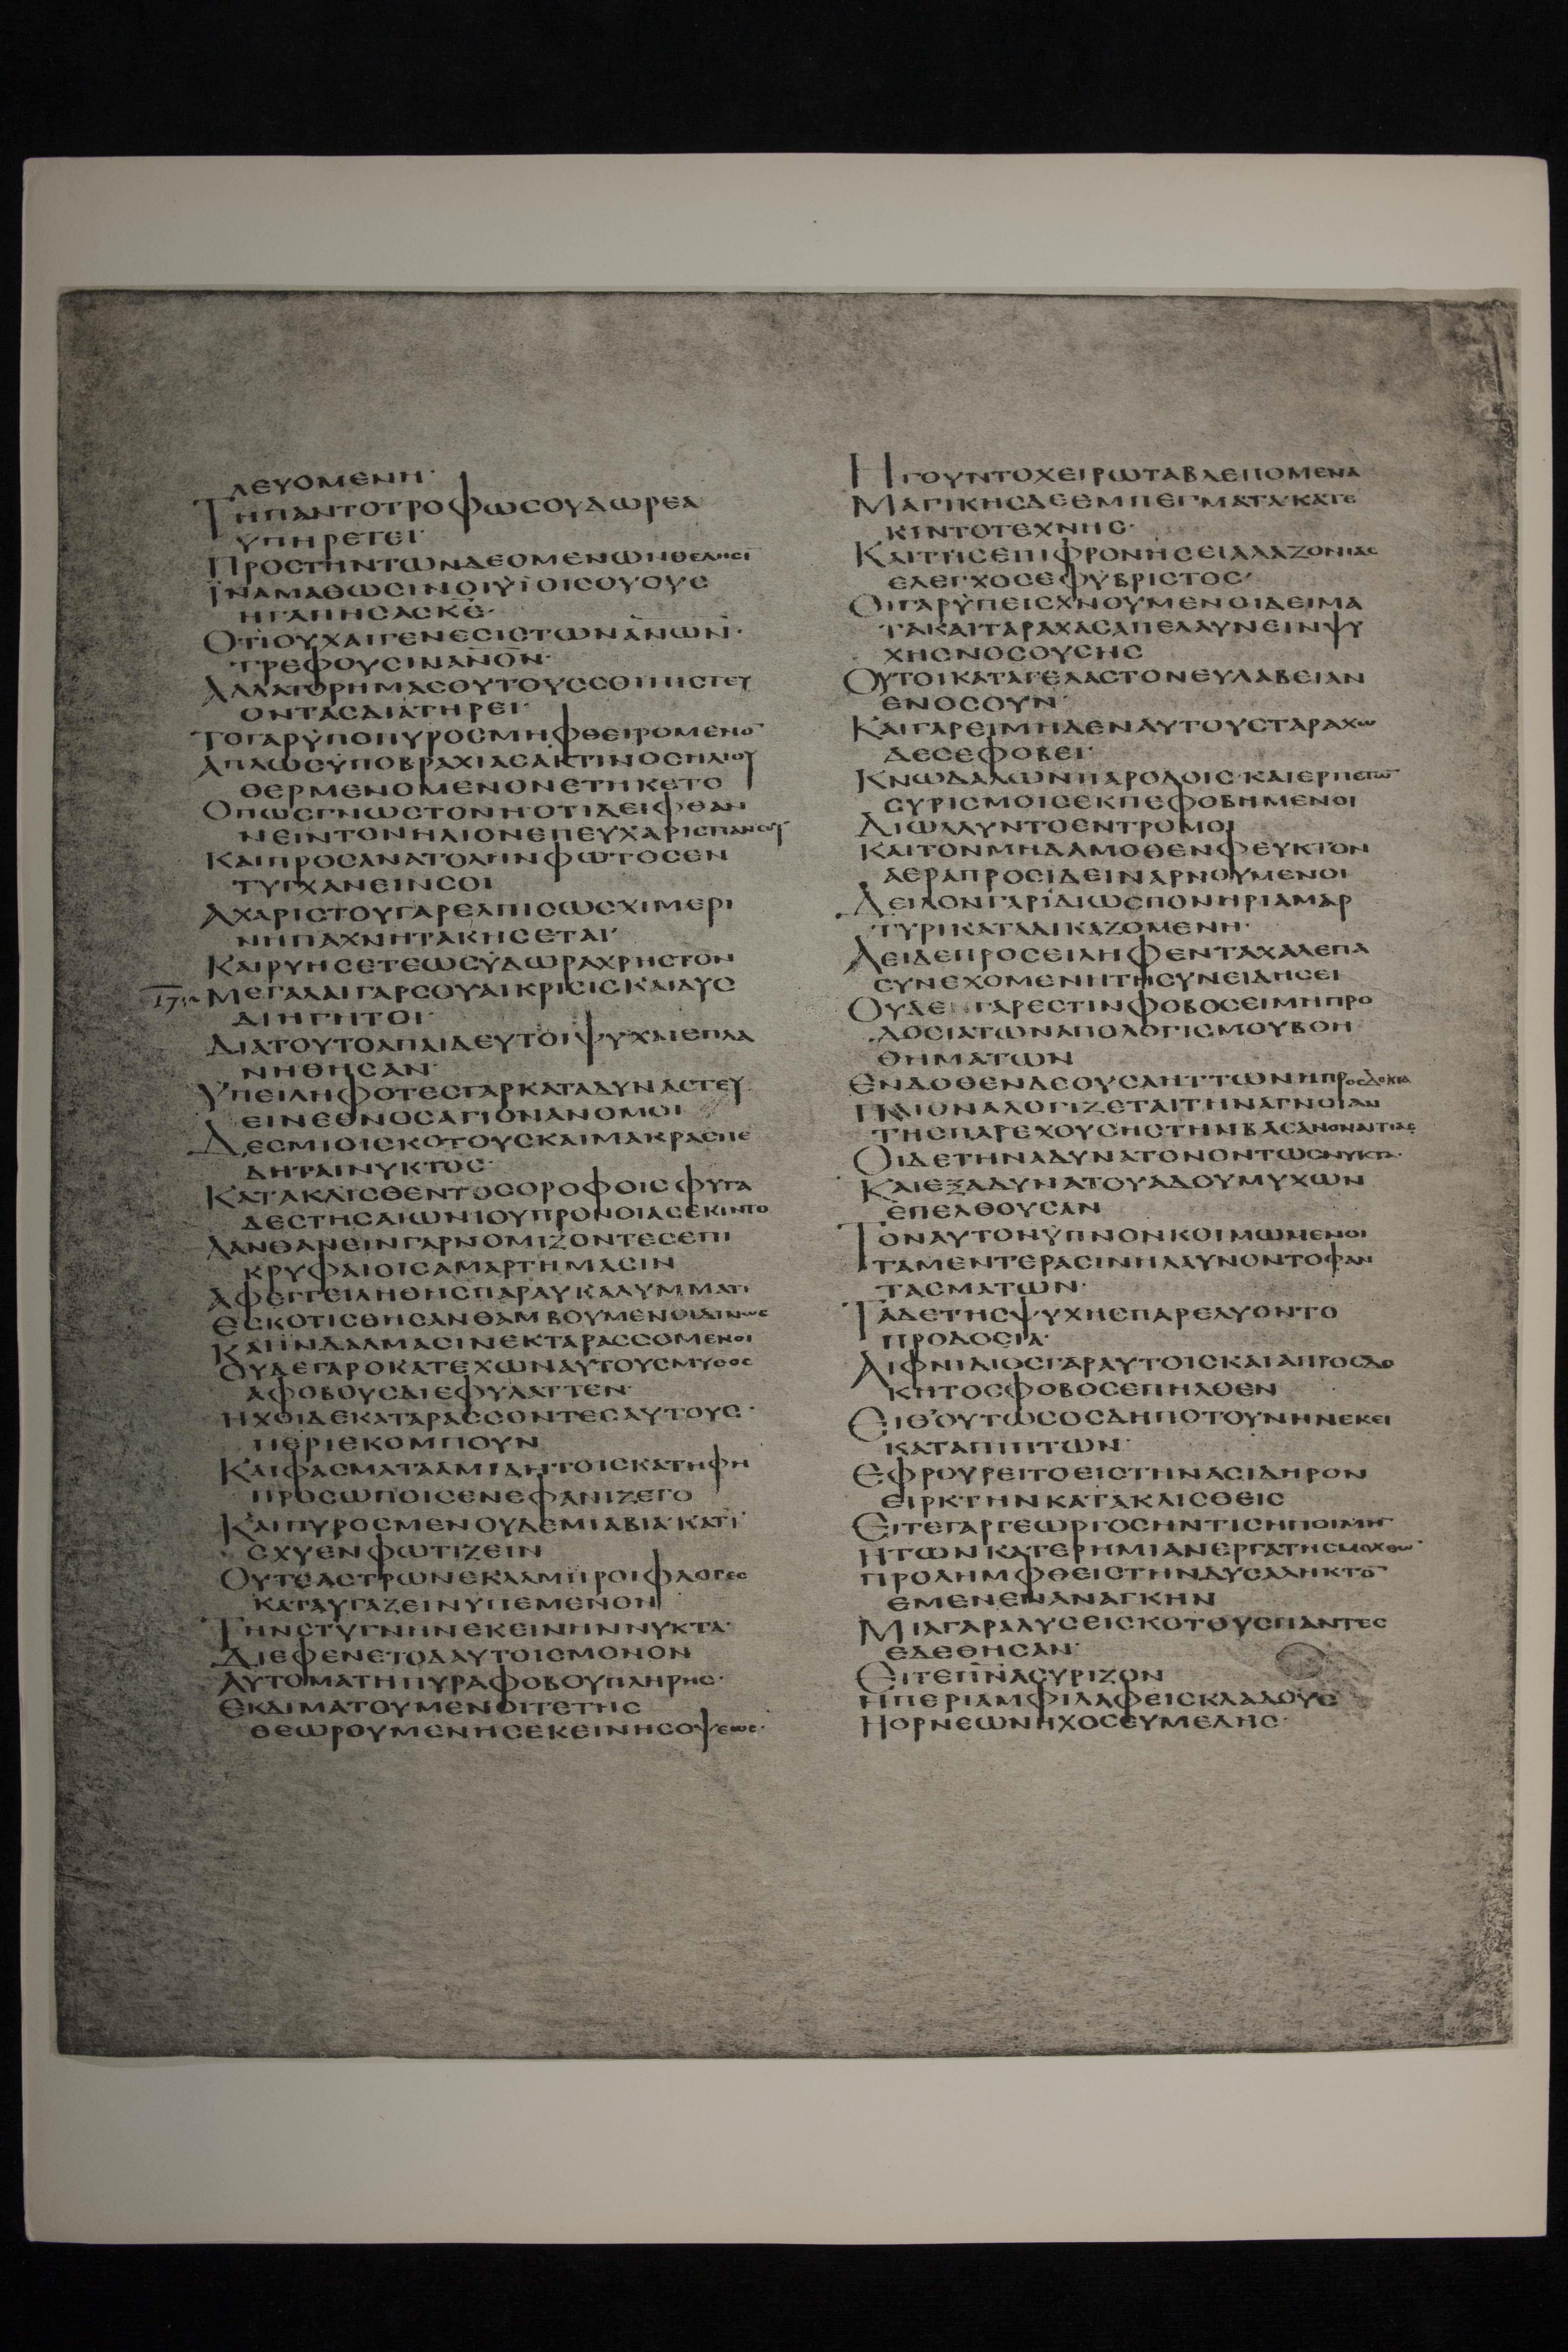 ΛΕΥΟΜΕΝΗ·
ΤΗΠΑΝΤΟΤΡΟΦΩΣΟΥΔΩΡΕΑ
ΥΠΗΡΕΤΕΙ·
ΠΡΟΣΤΗΝΤΩΝΔΕΟΜΕΝΩΝΘΕΛΗΣΙ̅
ΪΝΑΜΑΘΩΣΙΝΟΙΫΪΟΙΣΟΥΟΥΣ
ΗΓΑΠΗΣΑΣΚ̅Ε̅·
ΟΤΙΟΥΧΑΙΓΕΝΕΣΙΣΤΩΝΑ̅Ν̅Ω̅Ν̅·
ΤΡΕΦΟΥΣΙΝΑ̅Ν̅Ο̅Ν̅·
ΑΛΛΑΤΟΡΗΜΑΣΟΥΤΟΥΣΣΟΙΠΙΣΤΕΥ
ΟΝΤΑΣΔΙΑΤΗΡΕΙ·
ΤΟΓΑΡΫΠΟΠΥΡΟΣΜΗΦΘΕΙΡΟΜΕΝΟ̅
ΑΠΛΩΣΫΠΟΒΡΑΧΙΑΣΑΚΤΙΝΟΣΗΛΙΟΥ
ΘΕΡΜΕΝΟΜΕΝΟΝΕΤΗΚΕΤΟ
ΟΠΩΣΓΝΩΣΤΟΝΗΟΤΙΔΕΙΦΘΑΝ
ΝΕΙΝΤΟΝΗΛΙΟΝΕΠΕΥΧΑΡΙΣΤΙΑΝΣΟΥ
ΚΑΙΠΡΟΣΑΝΑΤΟΛΗΝΦΩΤΟΣΕΝ
ΤΥΓΧΑΝΕΙΝΣΟΙ
ΑΧΑΡΙΣΤΟΥΓΑΡΕΛΠΙΣΩΣΧΙΜΕΡΙ
ΝΗΠΑΧΝΗΤΑΚΗΣΕΤΑΙ·
ΚΑΙΡΥΗΣΕΤΕΩΣΫΔΩΡΑΧΡΗΣΤΟΝ
17. ΜΕΓΑΛΑΙΓΑΡΣΟΥΑΙΚΡΙΣΙΣΚΑΙΔΥΣ
ΔΙΗΓΗΤΟΙ·
ΔΙΑΤΟΥΤΟΑΠΑΙΔΕΥΤΟΙΨΥΧΑΙΕΠΛΑ
ΝΗΘΗΣΑΝ·
ΫΠΕΙΛΗΦΟΤΕΣΓΑΡΚΑΤΑΔΥΝΑΣΤΕΥ
ΕΙΝΕΘΝΟΣΑΓΙΟΝΑΝΟΜΟΙ
ΔΕΣΜΙΟΙΣΚΟΤΟΥΣΚΑΙΜΑΚΡΑΣΠΕ
ΔΗΤΑΙΝΥΚΤΟΣ·
ΚΑΤΑΚΛΙΣΘΕΝΤΟΣΟΡΟΦΟΙΣΦΥΓΑ
ΔΕΣΤΗΣΑΙΩΝΙΟΥΠΡΟΝΟΙΑΣΕΚΙΝΤΟ
ΛΑΝΘΑΝΕΙΝΓΑΡΝΟΜΙΖΟΝΤΕΣΕΠΙ
ΚΡΥΦΑΙΟΙΣΑΜΑΡΤΗΜΑΣΙΝ
ΑΦΕΓΓΕΙΛΗΘΗΣΠΑΡΑΥΚΑΛΥΜΜΑΤΙ
ΕΣΚΟΤΙΣΘΗΣΑΝΘΑΜΒΟΥΜΕΝΟΙΔΙΝΩΣ
ΚΑΙΪΝΔΑΛΜΑΣΙΝΕΚΤΑΡΑΣΣΟΜΕΝΟΙ
ΟΥΔΕΓΑΡΟΚΑΤΕΧΩΝΑΥΤΟΥΣΜΥΘΟΣ
ΑΦΟΒΟΥΣΔΙΕΦΥΛΑΤΤΕΝ·
ΗΧΟΙΔΕΚΑΤΑΡΑΣΣΟΝΤΕΣΑΥΤΟΥΣ·
ΠΕΡΙΕΚΟΜΠΟΥΝ
ΚΑΙΦΑΣΜΑΤΑΑΜΙΔΗΤΟΙΣΚΑΤΗΦΗ
ΠΡΟΣΩΠΟΙΣΕΝΕΦΑΝΙΖΕΤΟ
ΚΑΙΠΥΡΟΣΜΕΝΟΥΔΕΜΙΑΒΙΑ·ΚΑΤΙ
ΣΧΥΕΝΦΩΤΙΖΕΙΝ
ΟΥΤΕΑΣΤΡΩΝΕΚΛΑΜΠΡΟΙΦΛΟΓΕΣ
ΚΑΤΑΥΓΑΖΕΙΝΥΠΕΜΕΝΟΝ
ΤΗΝΣΤΥΓΝΗΝΕΚΕΙΝΗΝΝΥΚΤΑ·
ΔΙΕΦΕΝΕΤΟΔΑΥΤΟΙΣΜΟΝΟΝ
ΑΥΤΟΜΑΤΗΠΥΡΑΦΟΒΟΥΠΛΗΡΗΣ·
ΕΚΔΙΜΑΤΟΥΜΕΝΟΙΤΕΤΗΣ
ΘΕΩΡΟΥΜΕΝΗΣΕΚΕΙΝΗΣΟΨΕΩΣ·
ΗΓΟΥΝΤΟΧΕΙΡΩΤΑΒΛΕΠΟΜΕΝΑ
ΜΑΓΙΚΗΣΔΕΕΜΠΕΓΜΑΤΑ·ΚΑΤΕ
ΚΙΝΤΟΤΕΧΝΗΣ·
ΚΑΙΤΗΣΕΠΙΦΡΟΝΗΣΕΙΑΛΑΖΟΝΙΑΣ
ΕΛΕΓΧΟΣΕΦΥΒΡΙΣΤΟΣ·
ΟΙΓΑΡΫΠΕΙΣΧΝΟΥΜΕΝΟΙΔΕΙΜΑ
ΤΑΚΑΙΤΑΡΑΧΑΣΑΠΕΛΑΥΝΕΙΝΨΥ
ΧΗΣΝΟΣΟΥΣΗΣ
ΟΥΤΟΙΚΑΤΑΓΕΛΑΣΤΟΝΕΥΛΑΒΕΙΑΝ
ΕΝΟΣΟΥΝ·
ΚΑΙΓΑΡΕΙΜΗΔΕΝΑΥΤΟΥΣΤΑΡΑΧΩ
ΔΕΣΕΦΟΒΕΙ·
ΚΝΩΔΑΛΩΝΠΑΡΟΔΟΙΣ·ΚΑΙΕΡΠΕΤΩ̅
ΣΥΡΙΣΜΟΙΣΕΚΠΕΦΟΒΗΜΕΝΟΙ
ΔΙΩΛΛΥΝΤΟΕΝΤΡΟΜΟΙ
ΚΑΙΤΟΝΜΗΔΑΜΟΘΕΝΦΕΥΚΤΟΝ
ΑΕΡΑΠΡΟΣΙΔΕΙΝΑΡΝΟΥΜΕΝΟΙ
ΔΕΙΛΟΝΓΑΡΪΔΙΩΣΠΟΝΗΡΙΑΜΑΡ
ΤΥΡΙΚΑΤΑΔΙΚΑΖΟΜΕΝΗ·
ΑΕΙΔΕΠΡΟΣΕΙΛΗΦΕΝΤΑΧΑΛΕΠΑ
ΣΥΝΕΧΟΜΕΝΗΤΗΣΥΝΕΙΔΗΣΕΙ
ΟΥΔΕ ΓΑΡΕΣΤΙΝΦΟΒΟΣΕΙΜΗΠΡΟ
ΔΟΣΙΑΤΩΝΑΠΟΛΟΓΙΣΜΟΥΒΟΗ
ΘΗΜΑΤΩΝ
ΕΝΔΟΘΕΝΔΕΟΥΣΑΗΤΤΩΝΗΠΡΟΣΔΟΚΙΑ
ΠΛΙΟΝΑΛΟΓΙΖΕΤΑΙΤΗΝΑΓΝΟΙΑΝ
ΤΗΣΠΑΡΕΧΟΥΣΗΣΤΗΝΒΑΣΑΝΟΝΑΙΤΙΑΣ
ΟΙΔΕΤΗΝΑΔΥΝΑΤΟΝΟΝΤΩΣΝΥΚΤΑ·
ΚΑΙΕΞΑΔΥΝΑΤΟΥΑΔΟΥΜΥΧΩΝ
ΕΠΕΛΘΟΥΣΑΝ
ΤΟΝΑΥΤΟΝΫΠΝΟΝΚΟΙΜΩΜΕΝΟΙ
ΤΑΜΕΝΤΕΡΑΣΙΝΗΛΑΥΝΟΝΤΟΦΑΝ
ΤΑΣΜΑΤΩΝ·
ΤΑΔΕΤΗΣΨΥΧΗΣΠΑΡΕΛΥΟΝΤΟ
ΠΡΟΔΟΣΙΑ·
ΑΙΦΝΙΔΙΟΣΓΑΡΑΥΤΟΙΣΚΑΙΑΠΡΟΣΔΟ
ΚΗΤΟΣΦΟΒΟΣΕΠΗΛΘΕΝ
ΕΙΘΟΥΤΩΣΟΣΔΗΠΟΤΟΥΝΗΝΕΚΕΙ
ΚΑΤΑΠΙΠΤΩΝ·
ΕΦΡΟΥΡΕΙΤΟΕΙΣΤΗΝΑΣΙΔΗΡΟΝ
ΕΙΡΚΤΗΝΚΑΤΑΚΛΙΣΘΕΙΣ
ΕΙΤΕΓΑΡΓΕΩΡΓΟΣΗΝΤΙΣΗΠΟΙΜΗ̅
ΗΤΩΝΚΑΤΕΡΗΜΙΑΝΕΡΓΑΤΗΣΜΟΧΘΩ̅
ΠΡΟΛΗΜΦΘΕΙΣΤΗΝΔΥΣΑΛΗΚΤΟ̅
ΕΜΕΝΕΝΑΝΑΓΚΗΝ
ΜΙΑΓΑΡΑΛΥΣΕΙΣΚΟΤΟΥΣΠΑΝΤΕΣ
ΕΔΕΘΗΣΑΝ·
ΕΙΤΕΠ̅Ν̅Α̅ΣΥΡΙΖΟΝ
ΗΠΕΡΙΑΜΦΙΛΑΦΕΙΣΚΛΑΔΟΥΣ
ΗΟΡΝΕΩΝΗΧΟΣΕΥΜΕΛΗΣ·